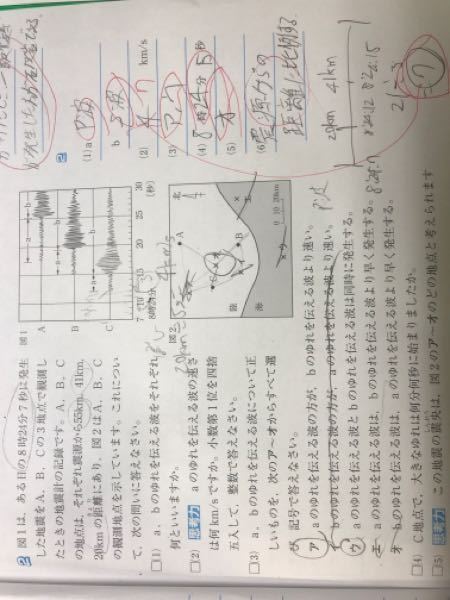 2 図1は，ある日の8時24分7秒に発生
した地震をA，B，Cの3地点で観測し
たときの地震計の記録です。A，B，C
の地点は，それぞれ震源から55km，41km，
20kmの距離にあり，図2はA，B，C
の観測地点を示しています。これについ
て，次の問いに答えなさい。
□(1) a，bのゆれを伝える波をそれぞれ
何といいますか。
□(2) 思考力 aのゆれを伝える波の速さ
は何km/sですか。小数第1位を四捨
五入して，整数で答えなさい。
□(3) a，bのゆれを伝える波について正
しいものを，次のア〜オからすべて選
び，記号で答えなさい。
ア aのゆれを伝える波の方が，bのゆれを伝える波より速い。
イ bのゆれを伝える波の方が，aのゆれを伝える波より速い。
ウ aのゆれを伝える波とbのゆれを伝える波は同時に発生する。
エ aのゆれを伝える波は，bのゆれを伝える波より早く発生する。
オ bのゆれを伝える波は，aのゆれを伝える波より早く発生する。
□(4) C地点で，大きなゆれは何分何秒に始まりましたか。
□(5) 思考力 この地震の震央は，図2のア〜オのどの地点と考えられます
図1
A
B
C
a
b
7 10 15 20 25 30
8時24分 (秒)
図2
北
A
B
C
陸
海
0 10 20km
2
(1) a P波
b S波
(2) 7 km/s
(3) ア, ウ
(4) 8時24分15秒
(5) オ
(6) 震源からの
距離に比例する
20km 41km